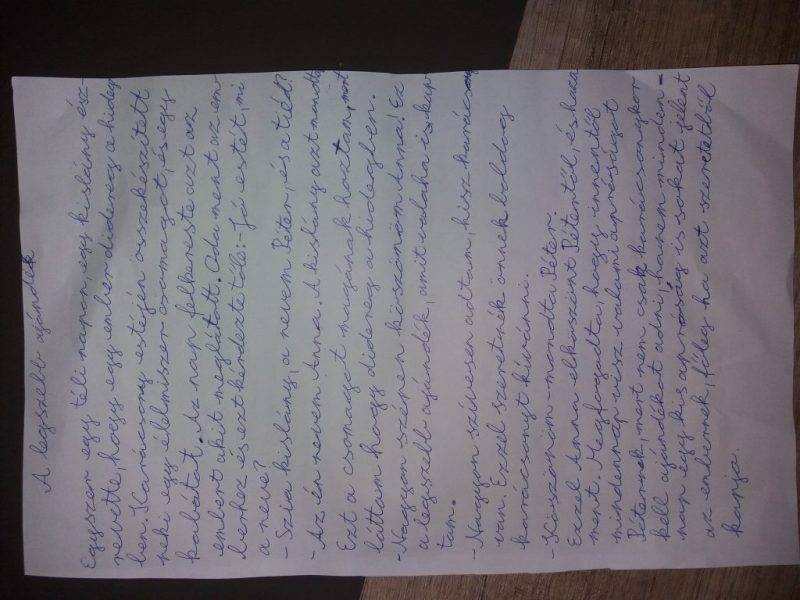 A legszebb ajándék
Egyszer egy téli napon egy kislány ész-
revette, hogy egy ember didereg a hideg
ben. Karácsony estéjén összekészített
neki egy élelmiszer csomagot, és egy
kabátot. Az nap felkereste azt az
embert akit meglátott. Oda ment az em
berhez és ezt kérdezte tőle: - Jó estét, mi
a neve?
- Szia kislány, a nevem Péter, és a tiéd?
- Az én nevem Anna. A kislány azt mondta
Ezt a csomagot magának hoztam, mert
láttam hogy didereg a hidegben.
- Nagyon szépen köszönöm Anna! Ez
a legszebb ajándék, amit valaha is kap-
tam.
- Nagyon szívesen adtam, hisz karácsony
van. Ezzel szeretnék önnek boldog
karácsonyt kívánni.
- Köszönöm - mondta Péter.
Ezzel Anna elköszönt Pétertől, és haza
ment. Megfogadta, hogy innentől
mindennap visz valami apróságot
Péternek, mert nem csak karácsonykor
kell ajándékot adni, hanem minden-
nap egy kis apróság is sokat jelent
az embernek, főleg ha azt szeretetből
kapja.